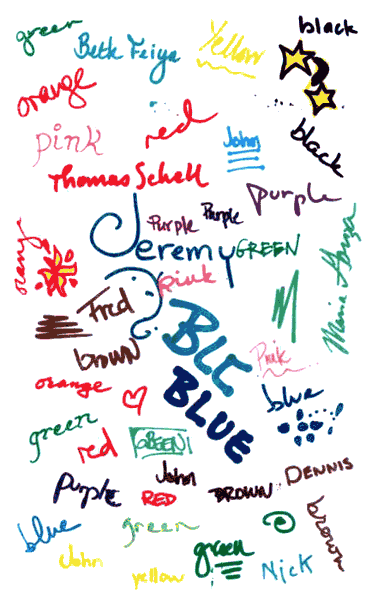 green
Beth Feiya
Yellow
black
orange
red
pink
John
black
Thomas Schell
purple
Purple
Purple
Jeremy
GREEN
orange
pink
Maria
Fred
BLE
brown
Pink
orange
BLUE
blue
green
red
GREEN
John
DENNIS
purple
RED
BROWN
blue
green
brown
John
yellow
green
Nick